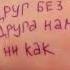 ДРУГ БЕЗ
ДРУГА НАМ
НИ КАК